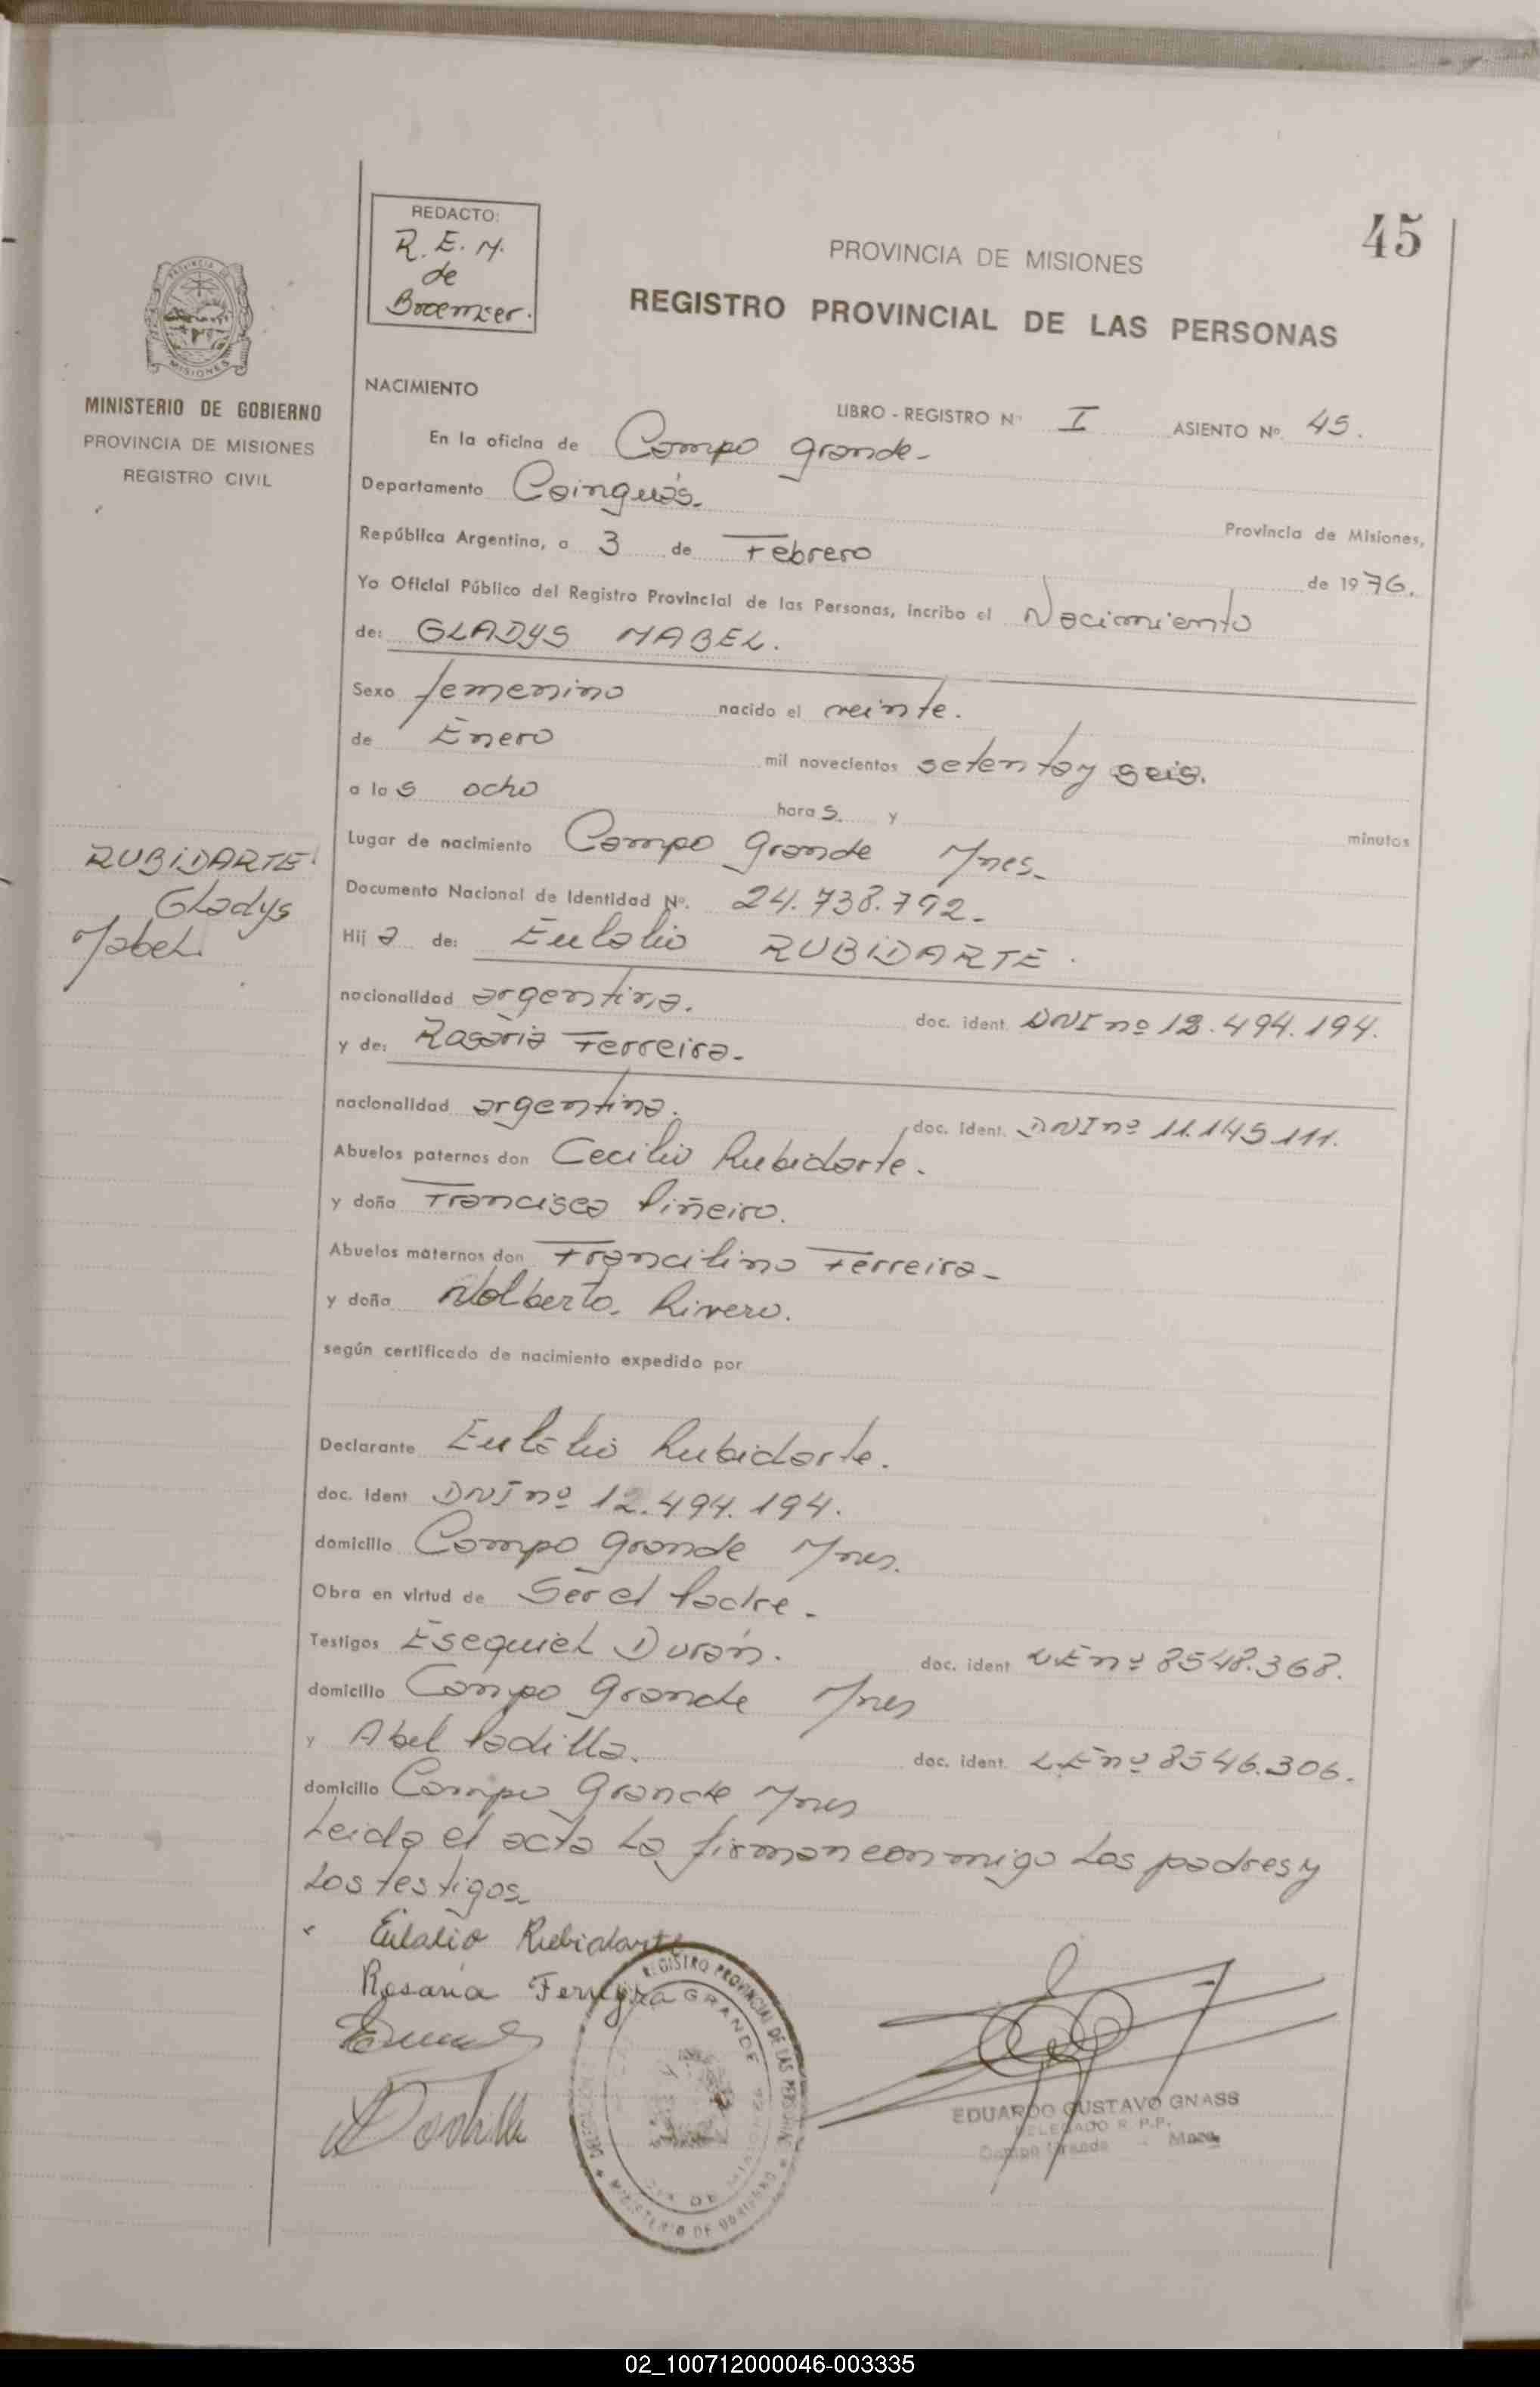 45
REDACTO:
R. E. M.
de
PROVINCIA DE MISIONES
REGISTRO PROVINCIAL DE LAS PERSONAS
PROVINCIA DE
MISIONES
MINISTERIO DE GOBIERNO
PROVINCIA DE MISIONES
REGISTRO CIVIL
NACIMIENTO
LIBRO - REGISTRO Nº I ASIENTO Nº 45.
En la oficina de Campo Grande -
Departamento Cainguás.
Provincia de Misiones,
República Argentina, a 3 de Febrero de 1976.
Yo Oficial Público del Registro Provincial de las Personas, incribo el Nacimiento
de: GLADYS MABEL.
Sexo femenino nacido el veinte.
de Enero mil novecientos setenta y seis.
a las ocho horas y minutos
Lugar de nacimiento Campo Grande Mnes.
Documento Nacional de Identidad Nº. 24.738.792.
RUBIDARTE
Gladys
Mabel.
Hija de: Eulalio RUBIDARTE.
nacionalidad argentina. doc. ident. DNI nº 12.494.194.
y de: Rosaria Ferreira.
nacionalidad argentina. doc. ident. DNI nº 11.145.111.
Abuelos paternos don Cecilio Rubidarte.
y doña Francisca Piñeiro.
Abuelos maternos don Francilino Ferreira -
y doña Nolberta Rivero.
según certificado de nacimiento expedido por
Declarante Eulalio Rubidarte.
doc. Ident DNI nº 12.494.194.
domicilio Campo Grande Mnes.
Obra en virtud de Ser el Padre -
Testigos Esequiel Durán. doc. ident LE nº 8548.368.
domicilio Campo Grande Mnes
y Abel Padilla. doc. ident. LE nº 8546.306.
domicilio Campo Grande Mnes
Leida el acta la firman conmigo los padres y
los testigos.
Eulalio Rubidarte
Rosaria Ferreyra
REGISTRO PROVINCIAL DE LAS PERSONAS
GRANDE
MINISTERIO DE GOBIERNO
EDUARDO GUSTAVO GNASS
DELEGADO R. P.P.
Campo Grande - Mnes
02_100712000046-003335